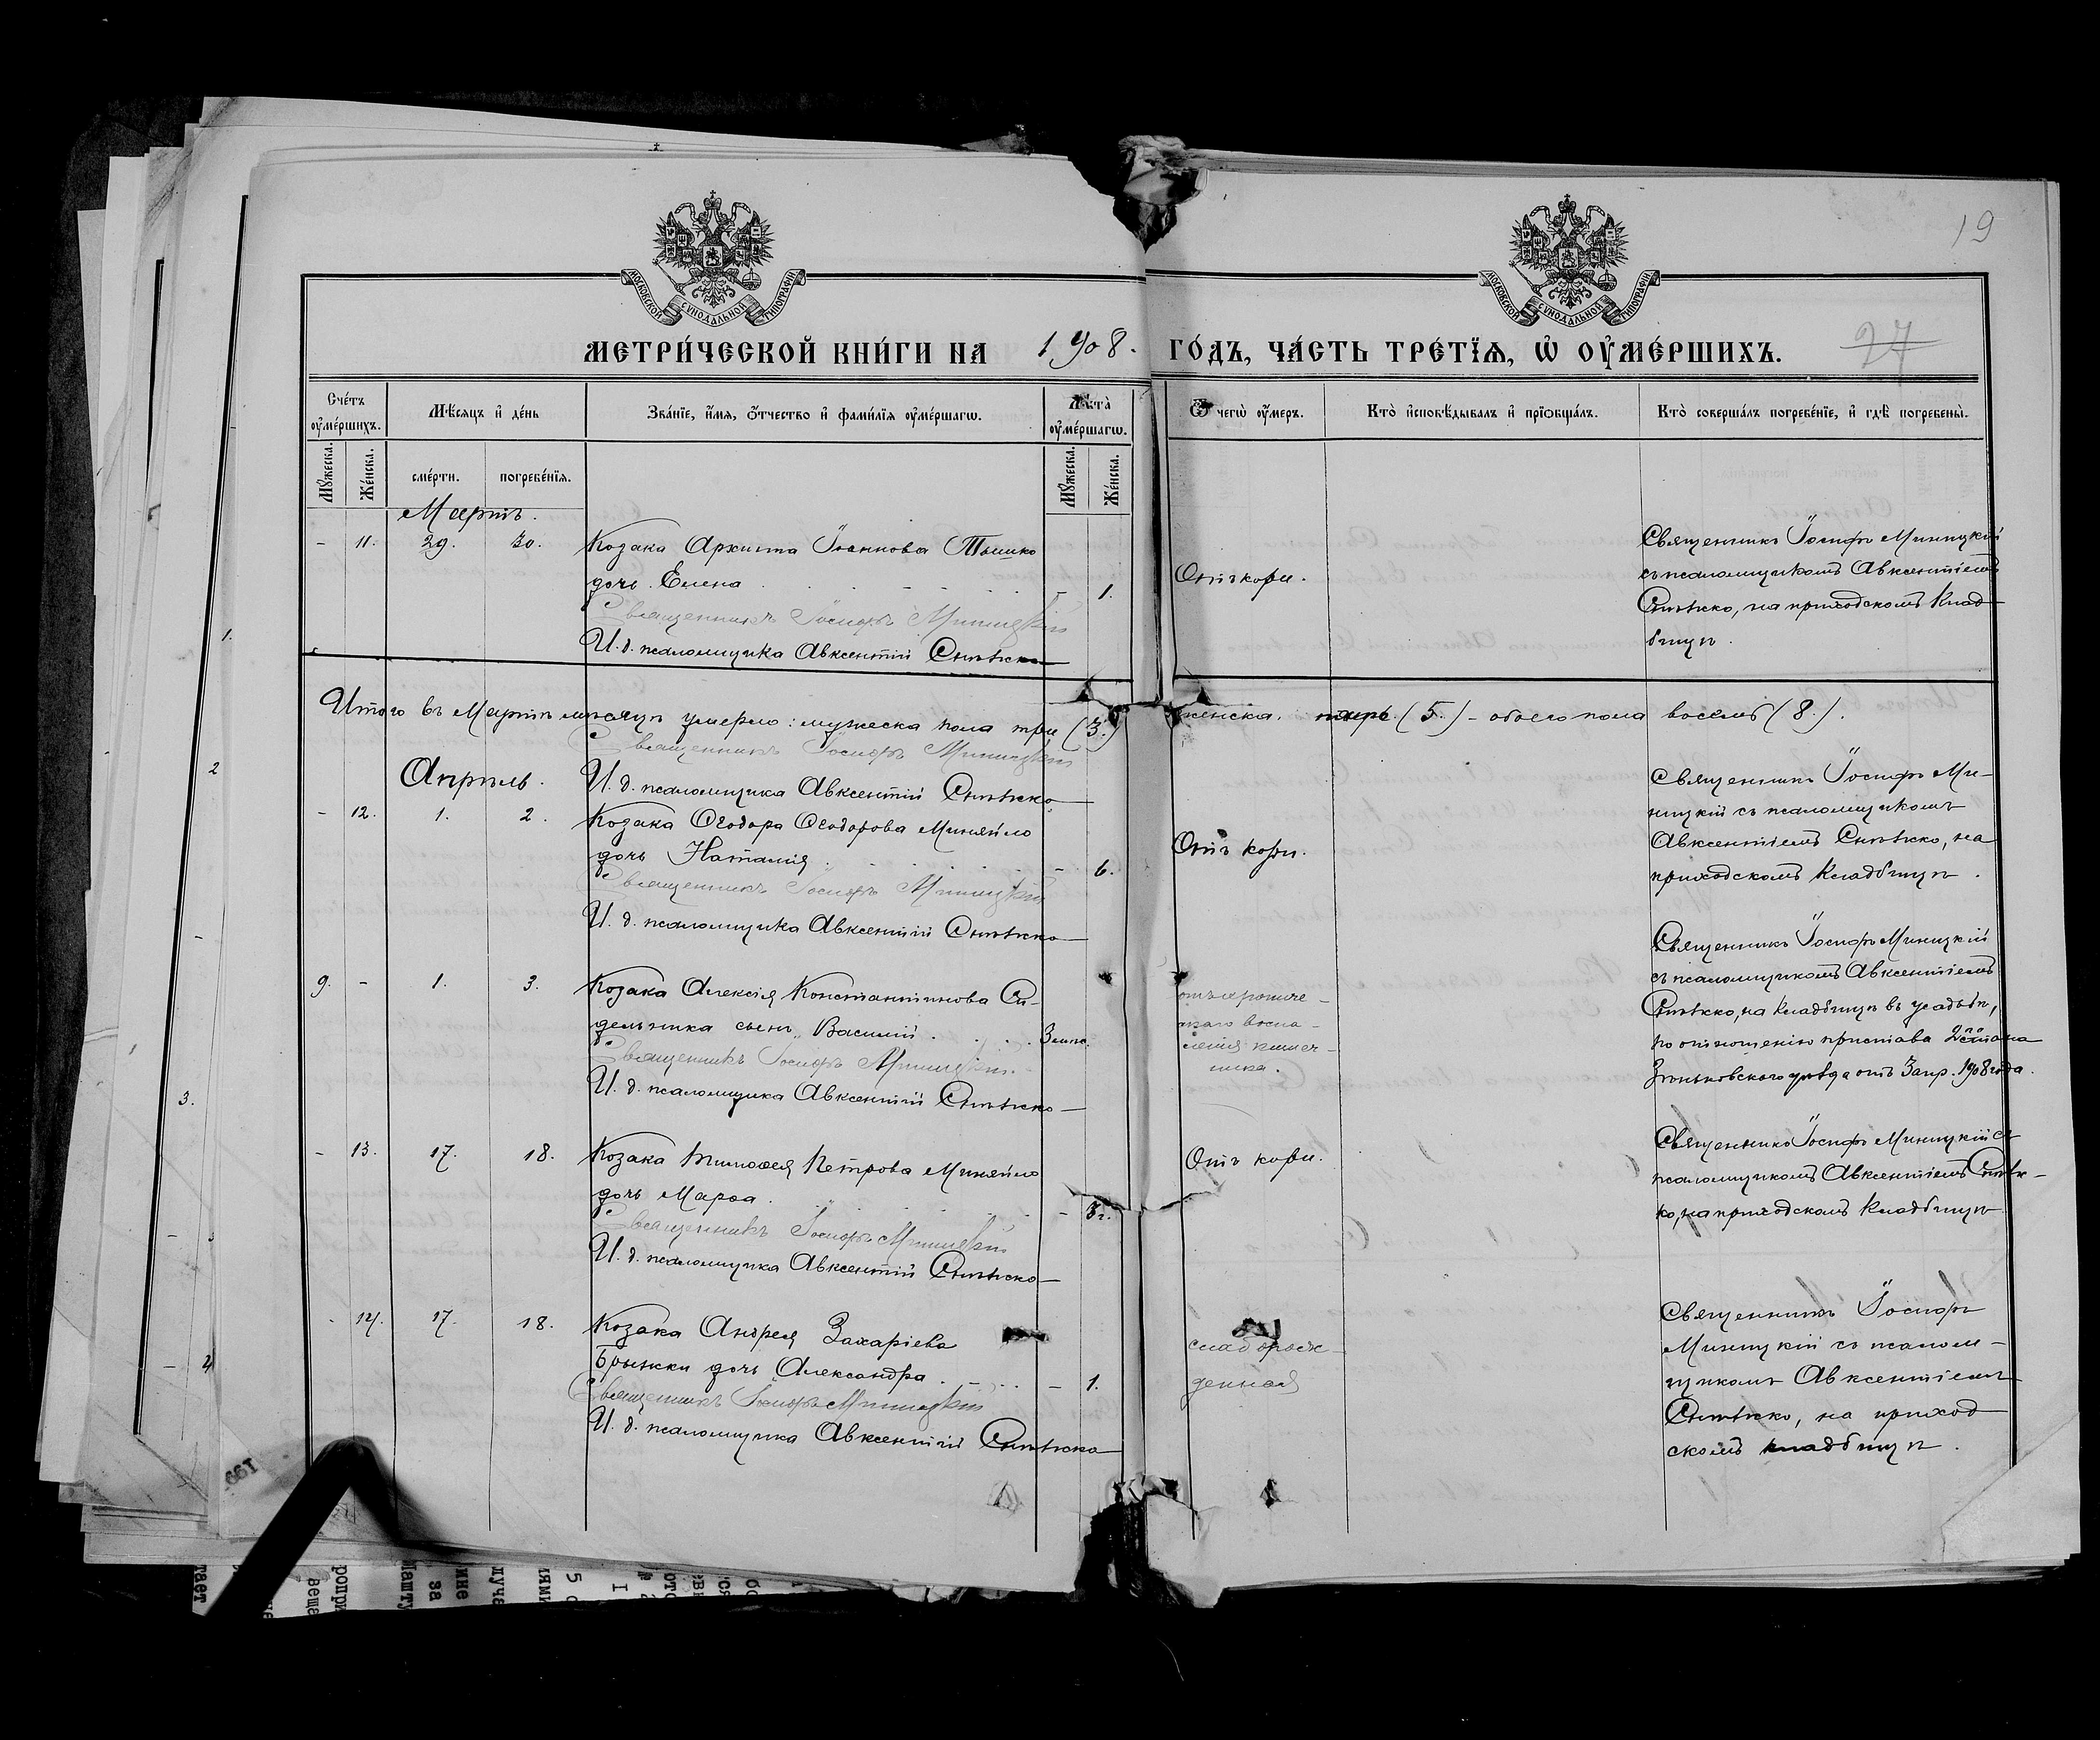 19
МОСКОВСКОЙ СѴНОДАЛЬНОЙ ТИПОГРАФІИ
МОСКОВСКОЙ СѴНОДАЛЬНОЙ ТИПОГРАФІИ
МЕТРИ́ЧЕСКОЙ КНИ́ГИ НА 1908. ГО́ДЪ, ЧА́СТЬ ТРЕ́ТЇѦ, Ѡ҆ ОУ҆МЕ́РШИХЪ. 27
Сче́тъ оу҆ме́ршихъ.
Мѣ́сѧцъ и҆ де́нь
Зва́нїе, и҆́мѧ, ѻ҆́тчество и҆ фами́лїѧ оу҆ме́ршагѡ.
Лѣ́та̀ оу҆ме́ршагѡ.
Ѿ чегѡ̀ оу҆́меръ.
Кто̀ и҆сповѣ́дывалъ и҆ прїѡбща́лъ.
Кто̀ соверша́лъ погребе́нїе, и҆ гдѣ̀ погребены̀.
Мꙋ́жеска.
Же́нска.
сме́рти.
погребе́нїѧ.
Мꙋ́жеска.
Же́нска.
Мартъ.
- 11. 29. 30. Козака Архипа Іоаннова Тышко
дочь Елена - 1.
Священникъ Іосифъ Миницкій
И. д. псаломщика Авксентій Снѣжко
Отъ кори.
Священникъ Іосифъ Миницкій
съ псаломщикомъ Авксентіемъ
Снѣжко, на приходскомъ клад
бищѣ.
Итого въ Мартѣ мѣсяцѣ умерло: мужеска пола три (3.) женска. пять (5.) - обоего пола восемь (8.).
Священникъ Іосифъ Миницкій
И. д. псаломщика Авксентій Снѣжко
Апрѣль.
- 12. 1. 2. Козака Ѳеодора Ѳеодорова Миняйло
дочь Наталія - 6.
Священникъ Іосифъ Миницкій
И. д. псаломщика Авксентій Снѣжко
Отъ кори.
Священникъ Іосифъ Ми-
ницкій съ псаломщикомъ
Авксентіемъ Снѣжко, на
приходскомъ кладбищѣ.
9. - 1. 3. Козака Алексія Константинова Си-
дельника сынъ Василій 3 мѣс.
Священникъ Іосифъ Миницкій
И. д. псаломщика Авксентій Снѣжко
отъ хрониче-
скаго воспа-
ленія кишеч-
ника.
Священникъ Іосифъ Миницкій
съ псаломщикомъ Авксентіемъ
Снѣжко, на кладбищѣ въ усадьбѣ,
по отношенію пристава 2го стана
Зѣньковского уѣзда отъ 3 апр. 1908 года.
- 13. 17. 18. Козака Тимоѳея Петрова Миняйло
дочь Марѳа. -
Священникъ Іосифъ Миницкій
И. д. псаломщика Авксентій Снѣжко
Отъ кори.
Священникъ Іосифъ Миницкій съ
псаломщикомъ Авксентіемъ Снѣж-
ко, на приходскомъ кладбищѣ
- 14. 17. 18. Козака Андрея Захаріева
Брыжки дочь Александра - 1.
Священникъ Іосифъ Миницкій
И. д. псаломщика Авксентій Снѣжко
слаборож-
денная
Священникъ Іосифъ
Миницкій съ псалом-
щикомъ Авксентіемъ
Снѣжко, на приход
скомъ кладбищѣ.
1.
2
3.
4